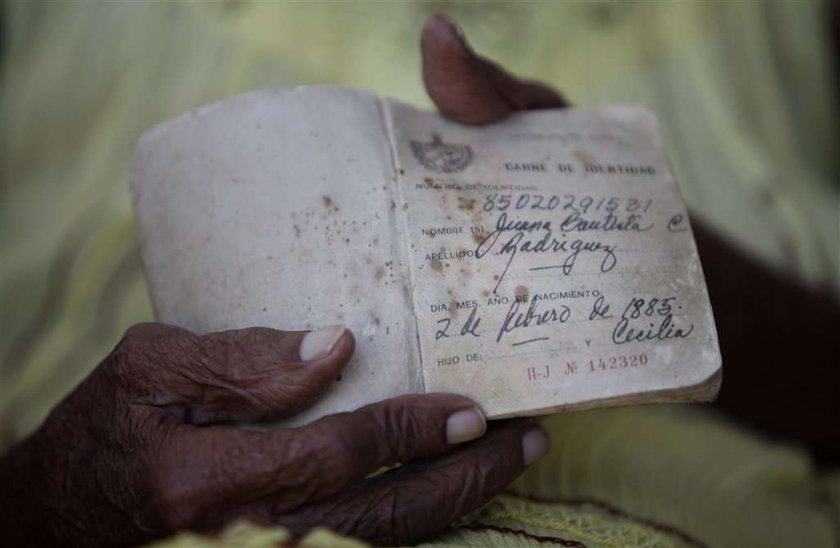 CARNÉ DE IDENTIDAD
NUMERO DE IDENTIDAD
85020291531
NOMBRE (S) Juana Bautista C
APELLIDOS Rodriguez
DIA, MES, AÑO DE NACIMIENTO,
2 de Febrero de 1885.
HIJO DE: — Y Cecilia
H-J Nº 142320